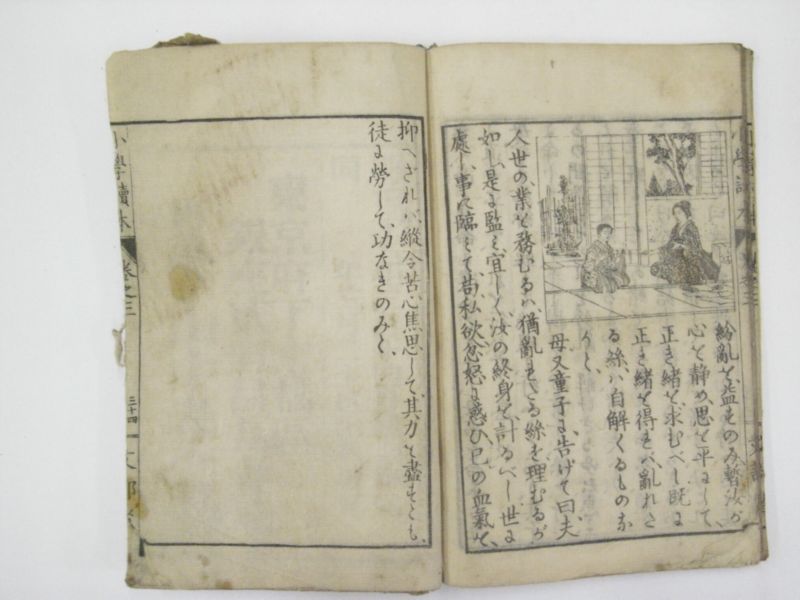 紛亂を益すのみ暫汝が
心を静め思を平にして、
正き緒を求むべし既に
正き緒を得れバ亂れた
る絲ハ自解くるものな
りと、
母又童子に告げて曰夫
人世の、業を務むるハ、猶亂れたる絲を理むるが
如し、是に監み、宜しく、汝の終身を計るべし世に
處し、事に臨みて、若、私欲忿怒に惑ひ、己の血氣を、
抑へざれバ、縱令苦心焦思して、其力を盡すとも、
徒に勞して、功なきのみと、
小學讀本 卷之三 三十四 文部省